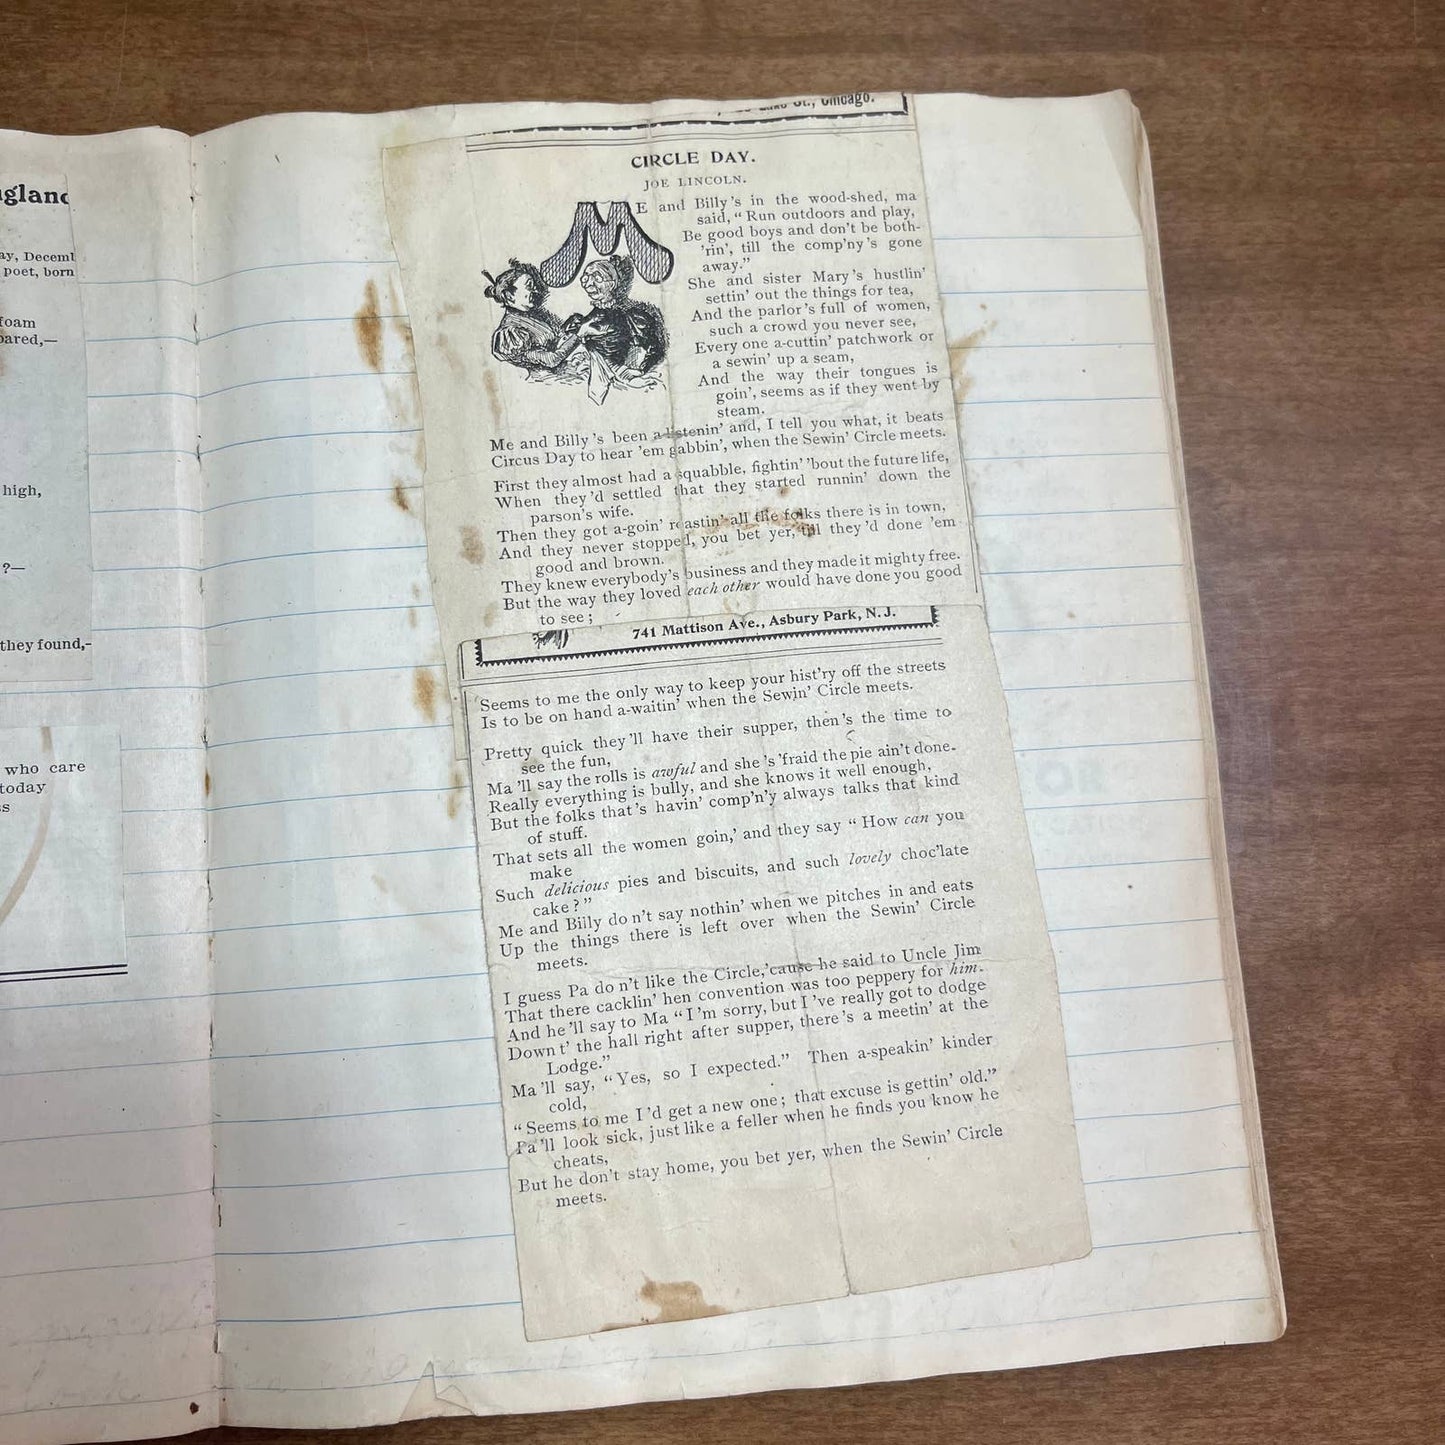 ngland
ay, Decemb
poet, born
foam
pared,—
high,
?—
they found,-
who care
today
ss
Lake St., Chicago.
CIRCLE DAY.
JOE LINCOLN.
ME and Billy's in the wood-shed, ma
said, "Run outdoors and play,
Be good boys and don't be both-
'rin', till the comp'ny's gone
away."
She and sister Mary's hustlin'
settin' out the things for tea,
And the parlor's full of women,
such a crowd you never see,
Every one a-cuttin' patchwork or
a sewin' up a seam,
And the way their tongues is
goin', seems as if they went by
steam.
Me and Billy's been a-listenin' and, I tell you what, it beats
Circus Day to hear 'em gabbin', when the Sewin' Circle meets.
First they almost had a squabble, fightin' 'bout the future life,
When they'd settled that they started runnin' down the
parson's wife.
Then they got a-goin' roastin' all the folks there is in town,
And they never stopped, you bet yer, till they'd done 'em
good and brown.
They knew everybody's business and they made it mighty free.
But the way they loved each other would have done you good
to see;
741 Mattison Ave., Asbury Park, N. J.
Seems to me the only way to keep your hist'ry off the streets
Is to be on hand a-waitin' when the Sewin' Circle meets.
Pretty quick they'll have their supper, then's the time to
see the fun,
Ma'll say the rolls is awful and she's 'fraid the pie ain't done.
Really everything is bully, and she knows it well enough,
But the folks that's havin' comp'n'y always talks that kind
of stuff.
That sets all the women goin,' and they say "How can you
make
Such delicious pies and biscuits, and such lovely choc'late
cake?"
Me and Billy don't say nothin' when we pitches in and eats
Up the things there is left over when the Sewin' Circle
meets.
I guess Pa don't like the Circle,'cause he said to Uncle Jim
That there cacklin' hen convention was too peppery for him.
And he'll say to Ma "I'm sorry, but I've really got to dodge
Down t' the hall right after supper, there's a meetin' at the
Lodge."
Ma'll say, "Yes, so I expected." Then a-speakin' kinder
cold,
"Seems to me I'd get a new one; that excuse is gettin' old."
Pa'll look sick, just like a feller when he finds you know he
cheats,
But he don't stay home, you bet yer, when the Sewin' Circle
meets.